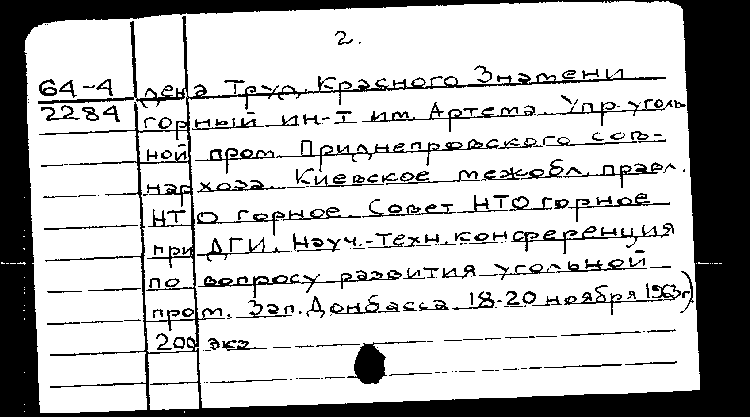 2.
64-4 дена Труд. Красного Знамени
2284 горный ин-т им. Артема. Упр. уголь
ной пром. Приднепровского сов-
нархоза. Киевское межобл. правл.
НТО горное. Совет НТО горное
при ДГИ. Науч.-техн. конференция
по вопросу развития угольной
пром. Зап. Донбасса. 18-20 ноября 1963г.)
200 экз.